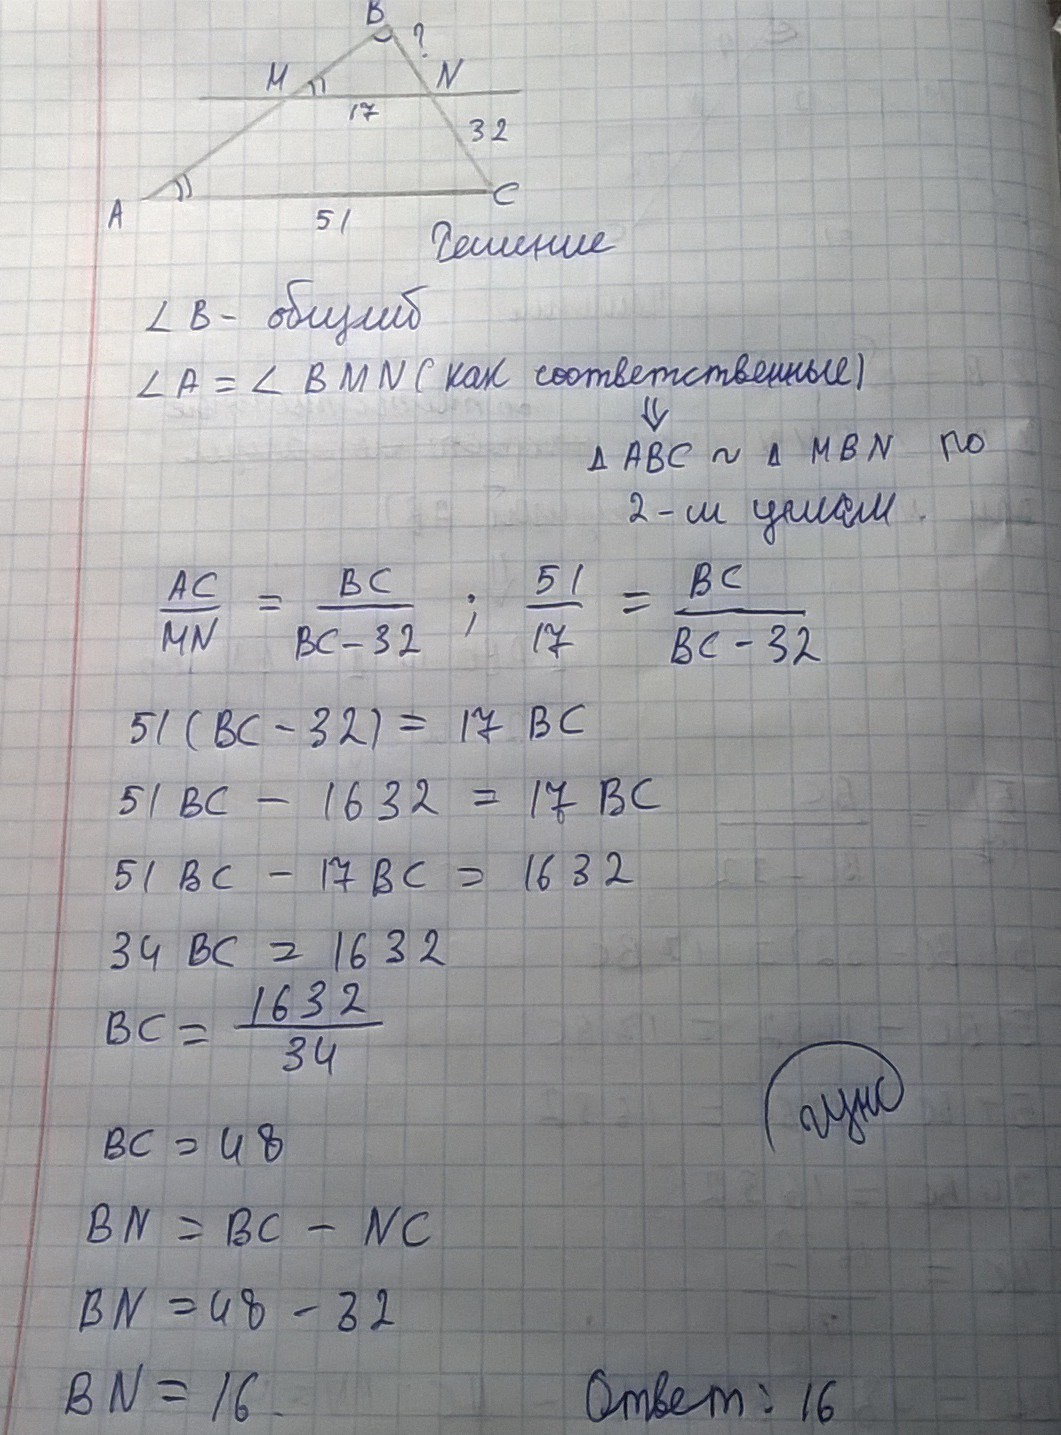 B
?
M N
17
32
A C
51
Решение
∠B - общий
∠A = ∠BMN (как соответственные)
⇓
Δ ABC ~ Δ MBN по
2-м углам.
AC/MN = BC/BC-32 ; 51/17 = BC/BC-32
51(BC-32) = 17 BC
51 BC - 1632 = 17 BC
51 BC - 17 BC = 1632
34 BC = 1632
BC = 1632/34
BC = 48
BN = BC - NC
BN = 48 - 32
BN = 16. Ответ: 16